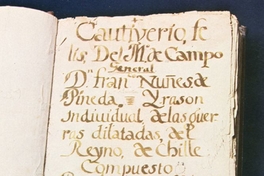 Cautiverio, fe
lis Del M. de Campo
General
D.n fran.co Nuñes. de
Pineda Y rason
Indiuidual, de las guer
ras dilatadas, del
Reyno, de Chille
Compuesto